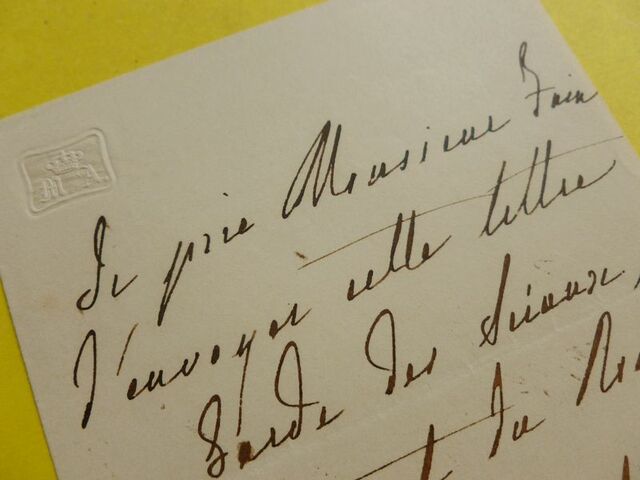 M A
Je prie Monsieur
d'envoyer cette lettre
Garde des Sceaux,
du